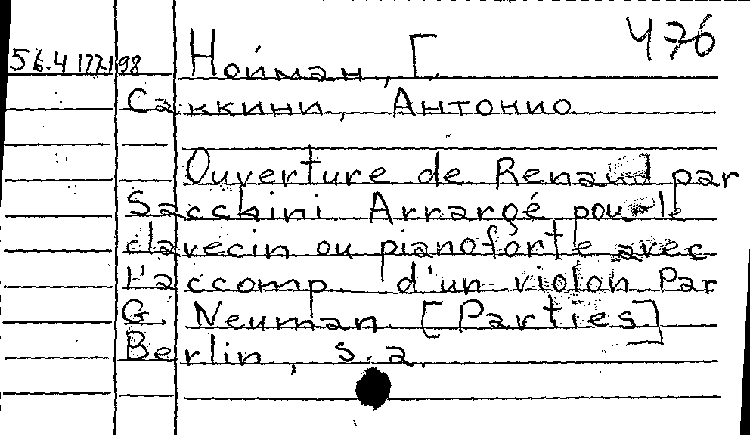 476
56.4 177.198 Нойман, Г.
Саккини, Антонио
Ouverture de Renaud par
Sacchini Arrargé pour le
clavecin ou pianoforte avec
l'accomp. d'un violon Par
G. Neuman [Parties]
Berlin, s.a.